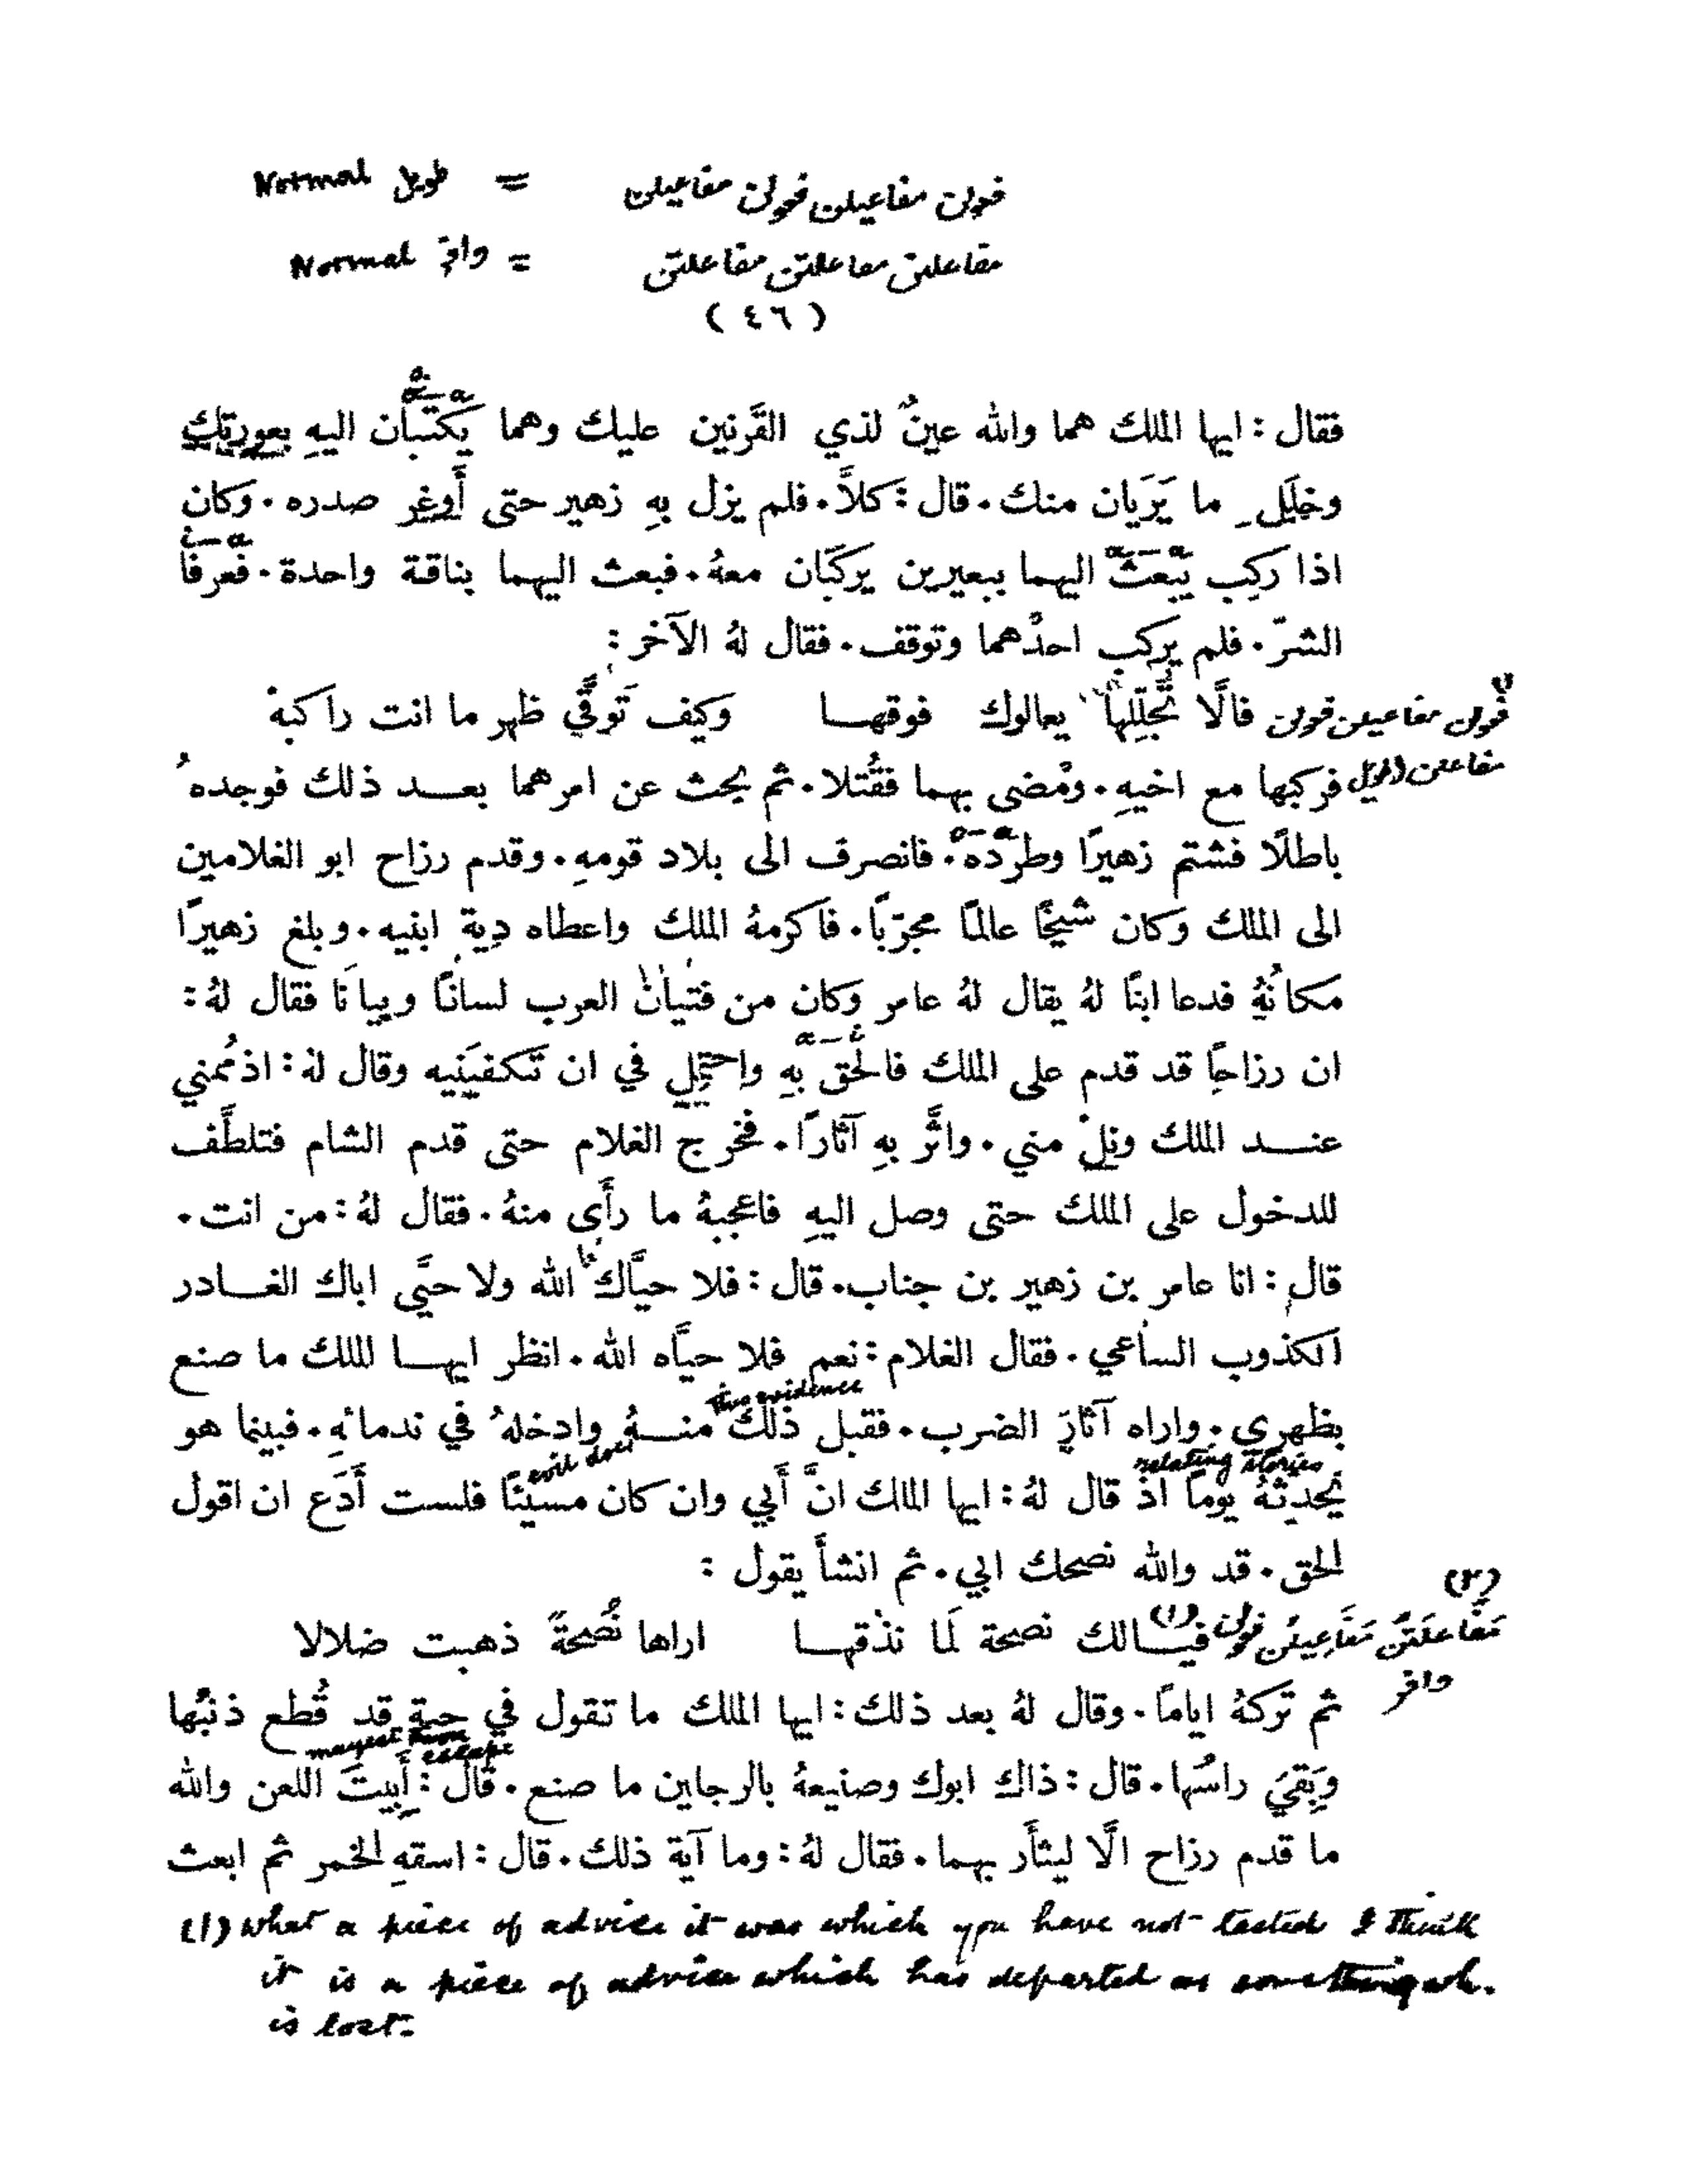 فعولن مفاعيلن فعولن مفاعيلن = طويل Normal
مفاعلتن مفاعلتن مفاعلتن = وافر Normal
( ٤٦ )
فقال : ايها الملك هما والله عينٌ لذي القَرنين عليك وهما يكتبَان اليهِ بعورتك
وخلَل ما يَرَيان منك . قال : كلاَّ . فلم يزل بهِ زهير حتى أَوغر صدره . وكان
اذا ركِب يَبعث اليهما ببعيرين يركبَان معهُ . فبعث اليهما بناقة واحدة . فعرفَا
الشرّ . فلم يركب احدُهما وتوقف . فقال لهُ الآخر :
(١) فعولن مفاعيلن فعولن فالَّا تجَلِلها يعالوك فوقهـا وكيف تَوقَّي ظهر ما انت راكبهْ
مفاعلن طويل فركبها مع اخيهِ . ومُضى بهما فقُتلا . ثم بحث عن امرهما بعـد ذلك فوجدهُ
باطلًا فشتم زهيرًا وطردَه . فانصرف الى بلاد قومهِ . وقدم رزاح ابو الغلامين
الى الملك وكان شيخًا عالمًا مجرّبًا . فاكرمهُ الملك واعطاه دِية ابنيه . وبلغ زهيرًا
مكانُهُ فدعا ابنًا لهُ يقال لهُ عامر وكان من فتيان العرب لسانًا وبيانًا فقال لهُ :
ان رزاحًا قد قدم على الملك فالحَق بهِ واحتَل في ان تَكفيَنيه وقال لهُ : اذمُمني
عنـد الملك ونل مني . واثَّر بهِ آثارًا . فخرج الغلام حتى قدم الشام فتلطَّف
للدخول على الملك حتى وصل اليهِ فاعجبهُ ما رأَى منهُ . فقال لهُ : من انت .
قال : انا عامر بن زهير بن جناب . قال : فلا حيَّاك الله ولا حيَّى اباك الغـادر
الكذوب الساعي . فقال الغلام : نعم فلا حيَّاه الله . انظر ايهـا الملك ما صنع
this evidence
بظهري . واراه آثارَ الضرب . فقبل ذلك منـهُ وادخلهُ في ندمائهِ . فبينما هو
relating stories evil doer
يُحدثهُ يوماً اذ قال لهُ : ايها الملك انَّ أَبي وان كان مسيئًا فلست أَدَع ان اقول
الحق . قد والله نصحك ابي . ثم انشأَ يقول :
(٢)
مفَاعلَتن مفَاعيلن فعولن فيـالك نصحة لَمَا نذُقهـا (١) اراها نُصحةً ذهبت ضلالا
وافر
ثم تركهُ اياماً . وقال لهُ بعد ذلك : ايها الملك ما تقول في حية قد قُطع ذنبُها
mayest thou escape
وبَقيَ راسُها . قال : ذاك ابوك وصنيعهُ بالرجلين ما صنع . قال : أَبيتَ اللعن والله
ما قدم رزاح الَّا ليثأَر بهما . فقال لهُ : وما آية ذلك . قال : اسقهِ الخمر ثم ابعث
(1) what a piece of advice it was which you have not tasted I think
it is a piece of advice which has departed as something wh.
is lost.